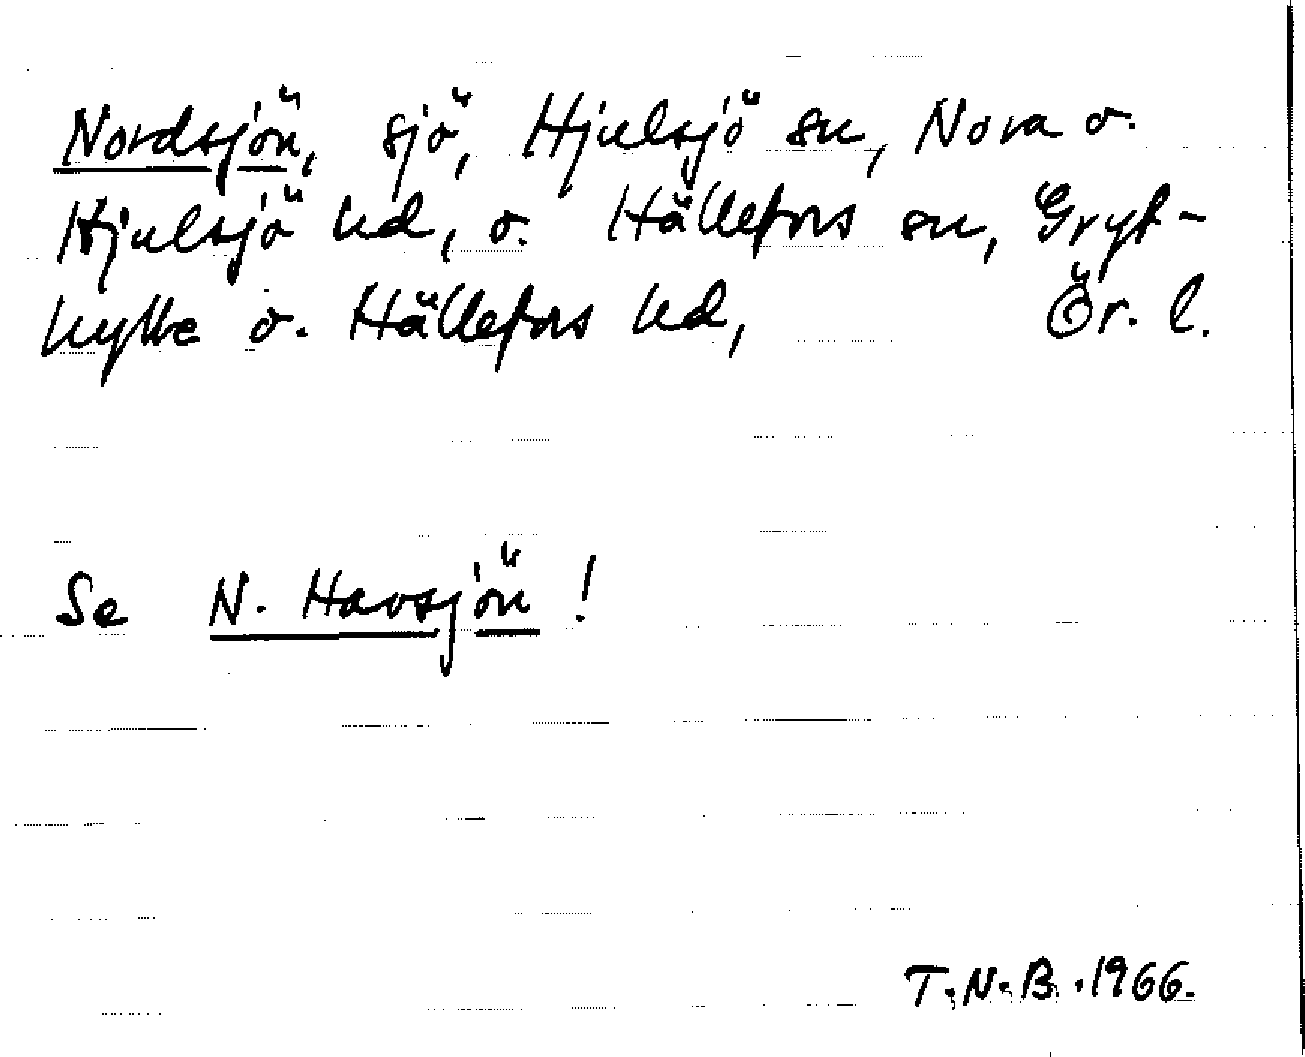 Nordsjön, sjö, Hjulsjö sn, Nora o.
Hjulsjö hd, o. Hällefors sn, Gryt-
hytte o. Hällefors hd, Ör. l.
Se N. Havsjön!
T.N.B. 1966.